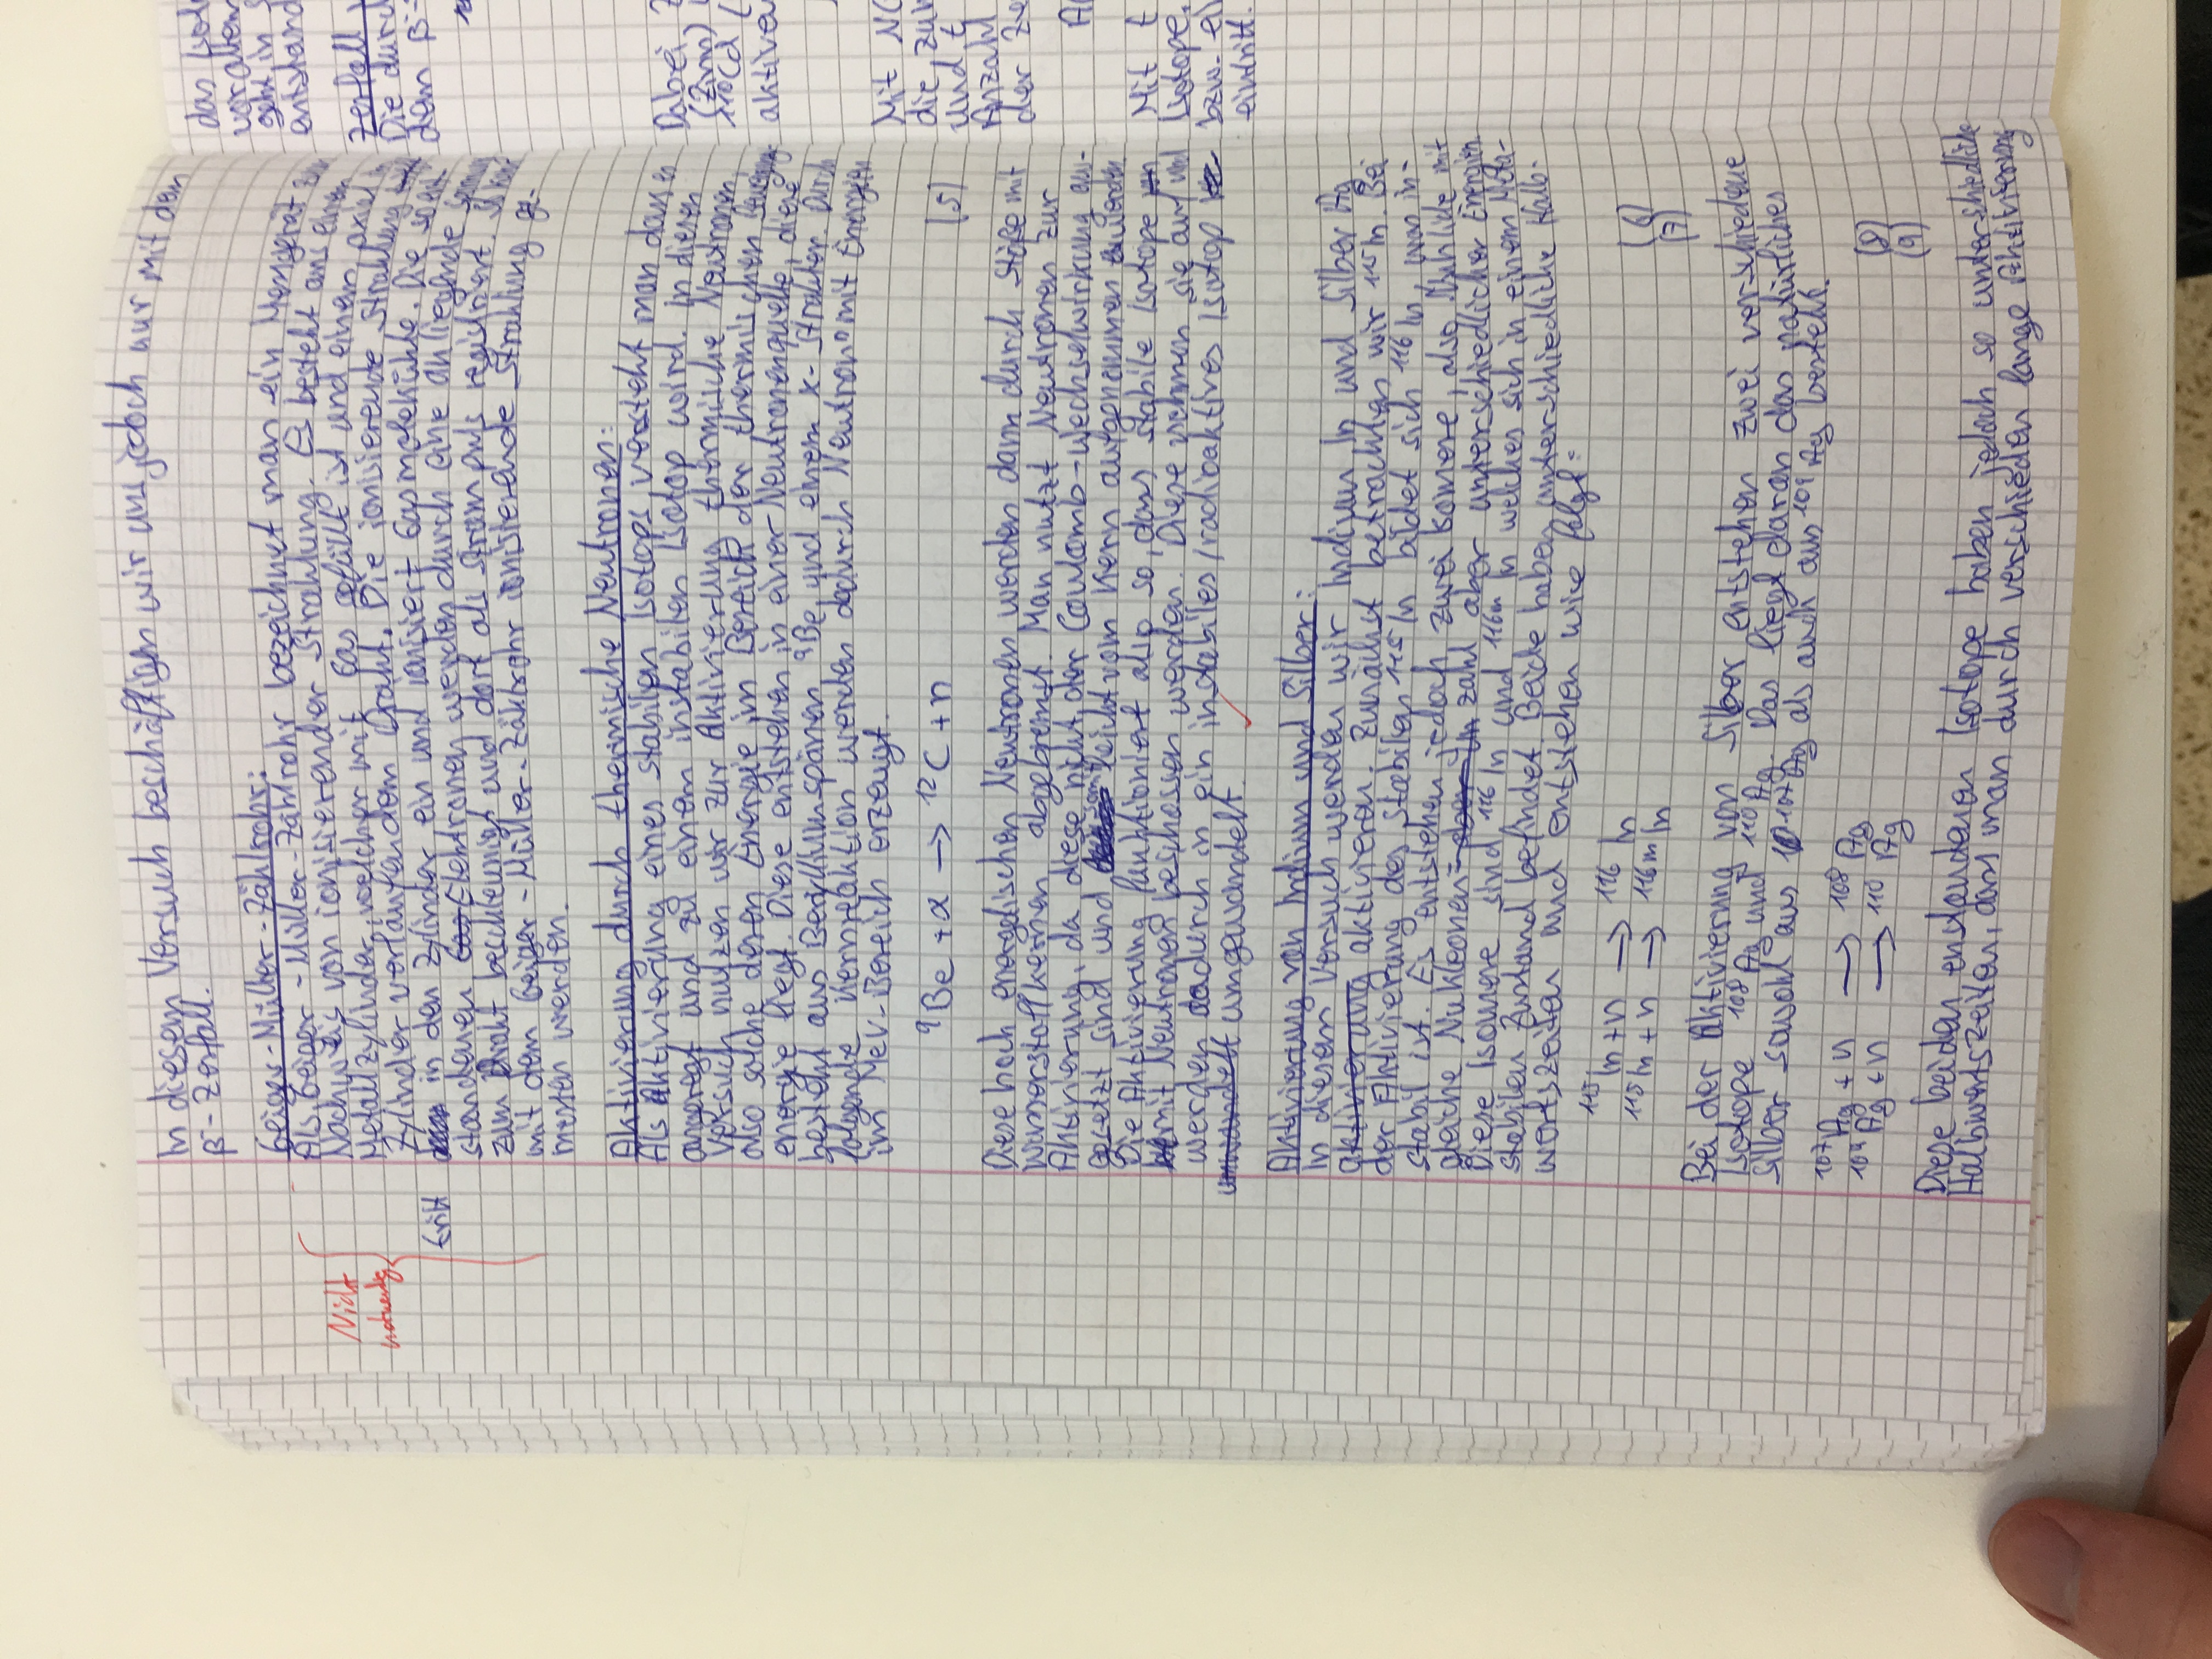 In diesem Versuch beschäftigen wir uns jedoch nur mit dem
β⁻-Zerfall.
Geiger-Müller-Zählrohr:
Als Geiger-Müller-Zählrohr bezeichnet man ein Messgerät zum
Nachweis von ionisierender Strahlung. Es besteht aus einem
Metallzylinder, welcher mit Gas gefüllt ist und einem axial im
Zylinder verlaufendem Draht. Die ionisierende Strahlung
tritt in den Zylinder ein und ionisiert Gasmoleküle. Die so ent-
standenen Elektronen werden durch eine anliegende Spannung
zum Draht beschleunigt und dort als Strompuls registriert. So kann
mit dem Geiger-Müller-Zählrohr ionisierende Strahlung ge-
messen werden.
Nicht
notwendig
Aktivierung durch thermische Neutronen:
Als Aktivierung eines stabilen Isotops versteht man dass es
angeregt und zu einem instabilen Isotop wird. In diesen
Versuch nutzen wir zur Aktivierung thermische Neutronen,
also solche deren Energie im Bereich der thermischen Bewegungs-
energie liegt. Diese entstehen in einer Neutronenquelle, diese
besteht aus Berylliumspänen ⁹Be und einem α-Strahler. Durch
folgende Kernreaktion werden dadurch Neutronen mit Energien
im MeV-Bereich erzeugt.
⁹Be + α → ¹²C + n (5)
Diese hoch energetischen Neutronen werden dann durch Stöße mit
Wasserstoffkernen abgebremst. Man nutzt Neutronen zur
Aktivierung, da diese nicht der Coulomb-Wechselwirkung aus-
gesetzt sind und somit leicht vom Kern aufgenommen werden.
Die Aktivierung funktioniert also so, dass stabile Isotope
mit Neutronen beschossen werden. Diese nehmen sie auf und
werden dadurch in ein instabiles/radioaktives Isotop
umwandelt umgewandelt.
Aktivierung von Indium und Silber:
In diesem Versuch werden wir Indium In und Silber Ag
aktivierung aktivieren. Zunächst betrachten wir ¹¹⁵In. Bei
der Aktivierung des stabilen ¹¹⁵In bildet sich ¹¹⁶In, was in-
stabil ist. Es entstehen jedoch zwei Isomere, also Nuklide mit
gleiche Nukleonen- zahl aber unterschiedlicher Energien.
Diese Isomere sind ¹¹⁶In und ¹¹⁶ᵐIn welches sich in einem Meta-
stabilen Zustand befindet. Beide haben unterschiedliche Halb-
wertszeiten und entstehen wie folgt:
¹¹⁵In + n → ¹¹⁶In (6)
¹¹⁵In + n → ¹¹⁶ᵐIn (7)
Bei der Aktivierung von Silber entstehen zwei verschiedene
Isotope ¹⁰⁸Ag und ¹¹⁰Ag. Das liegt daran das natürliches
Silber sowohl aus ¹⁰⁷Ag als auch aus ¹⁰⁹Ag besteht.
¹⁰⁷Ag + n → ¹⁰⁸Ag (8)
¹⁰⁹Ag + n → ¹¹⁰Ag (9)
Diese beiden enstandenen Isotope haben jedoch so unterschiedliche
Halbwertszeiten, dass man durch verschieden lange Aktivierung
das
vor allem
geht in
entstand
Zerfall
Die durch
dem β⁻
Dabei
(Zinn)
¹¹⁰Cd
aktive
Mit
die
und t
Anzahl
der
Mit t
Isotope.
bzw. ei
eintritt.